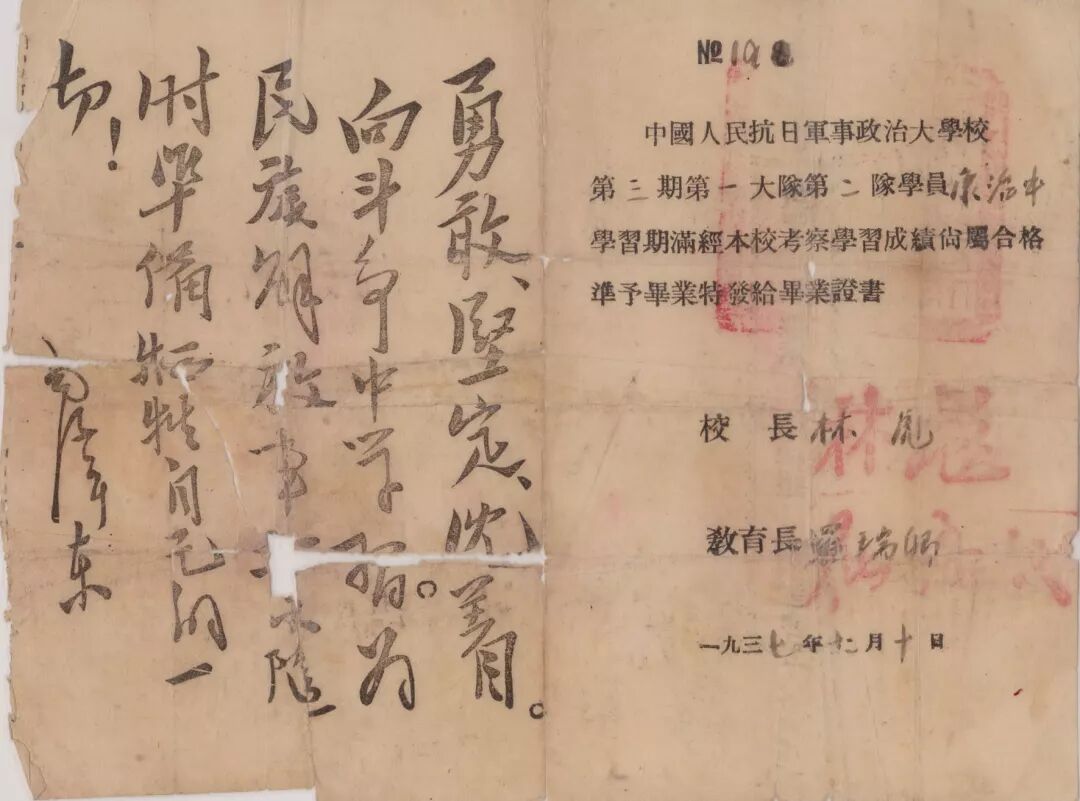 勇敢、堅定、沈着。
向斗争中学習。为
民族解放事 永隨
时準備牺牲自己的一
切！
毛澤東
№ 19
中國人民抗日軍事政治大學校
第三期第一大隊第二隊學員
學習期滿經本校考察學習成績尙屬合格
準予畢業特發給畢業證書
校 長 林彪
敎育長 羅瑞卿
一九三七年十二月十日